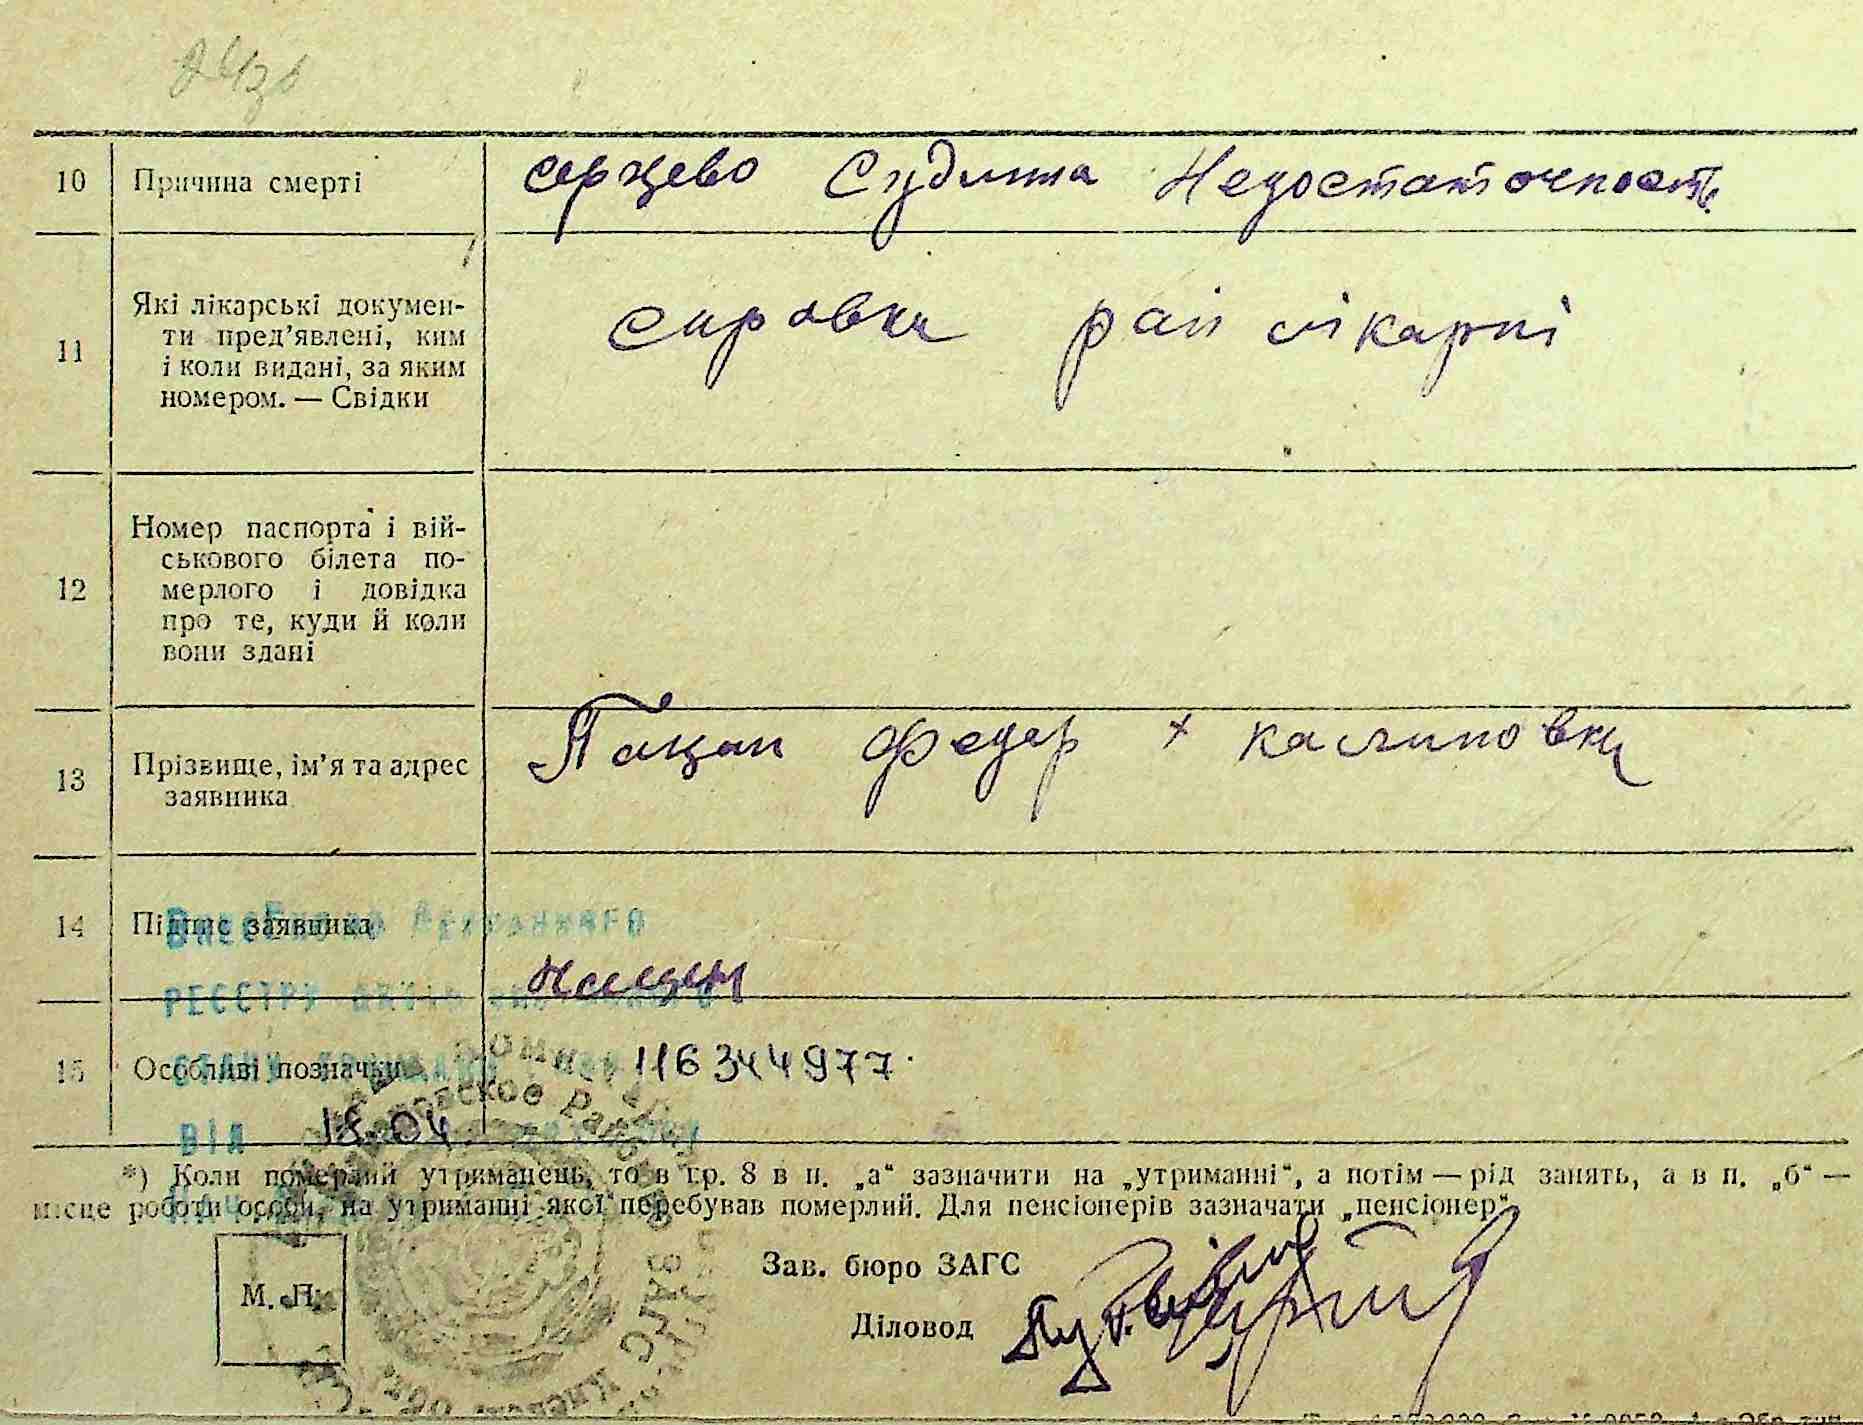 10 Причина смерті серцево Судинна Недостаточность
11 Які лікарські докумен-
ти пред’явлені, ким
і коли видані, за яким
номером. — Свідки
справка рай лікарні
12 Номер паспорта і вій-
ськового білета по-
мерлого і довідка
про те, куди й коли
вони здані
13 Прізвище, ім’я та адрес
заявника
Пацан Федер х калиновка
14 Підпис заявника
Внесено до Державного
РЕЄСТРУ
15 Особливі позначки 116344977
ВІД 15.04
*) Коли померлий утриманець, то в гр. 8 в п. „а“ зазначити на „утриманні“, а потім — рід занять, а в п. „б“ —
місце роботи особи, на утриманні якої перебував померлий. Для пенсіонерів зазначати „пенсіонер“.
М. П.
Зав. бюро ЗАГС
Діловод